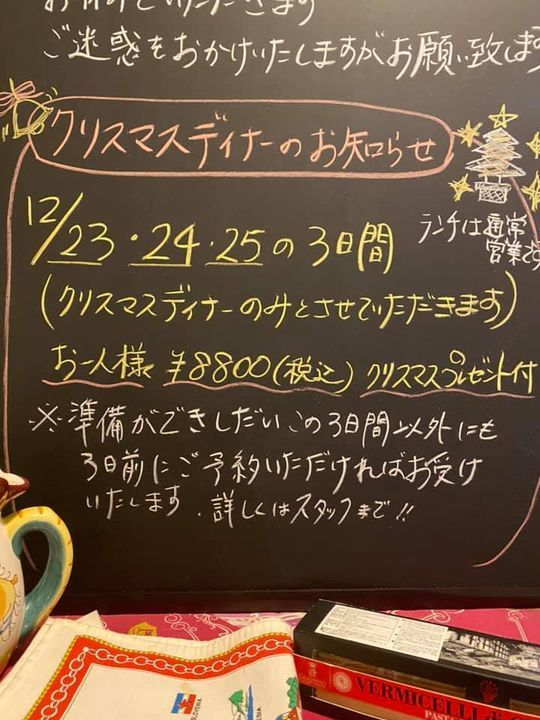 ご迷惑をおかけいたしますがお願い致します
クリスマスディナーのお知らせ
12/23・24・25の3日間
ランチは通常
営業です
(クリスマスディナーのみとさせていただきます)
お一人様 ¥8800(税込) クリスマスプレゼント付
※準備ができしだいこの3日間以外にも
3日前にご予約いただければお受け
いたします。詳しくはスタッフまで!!
VERMICELLI
PAST